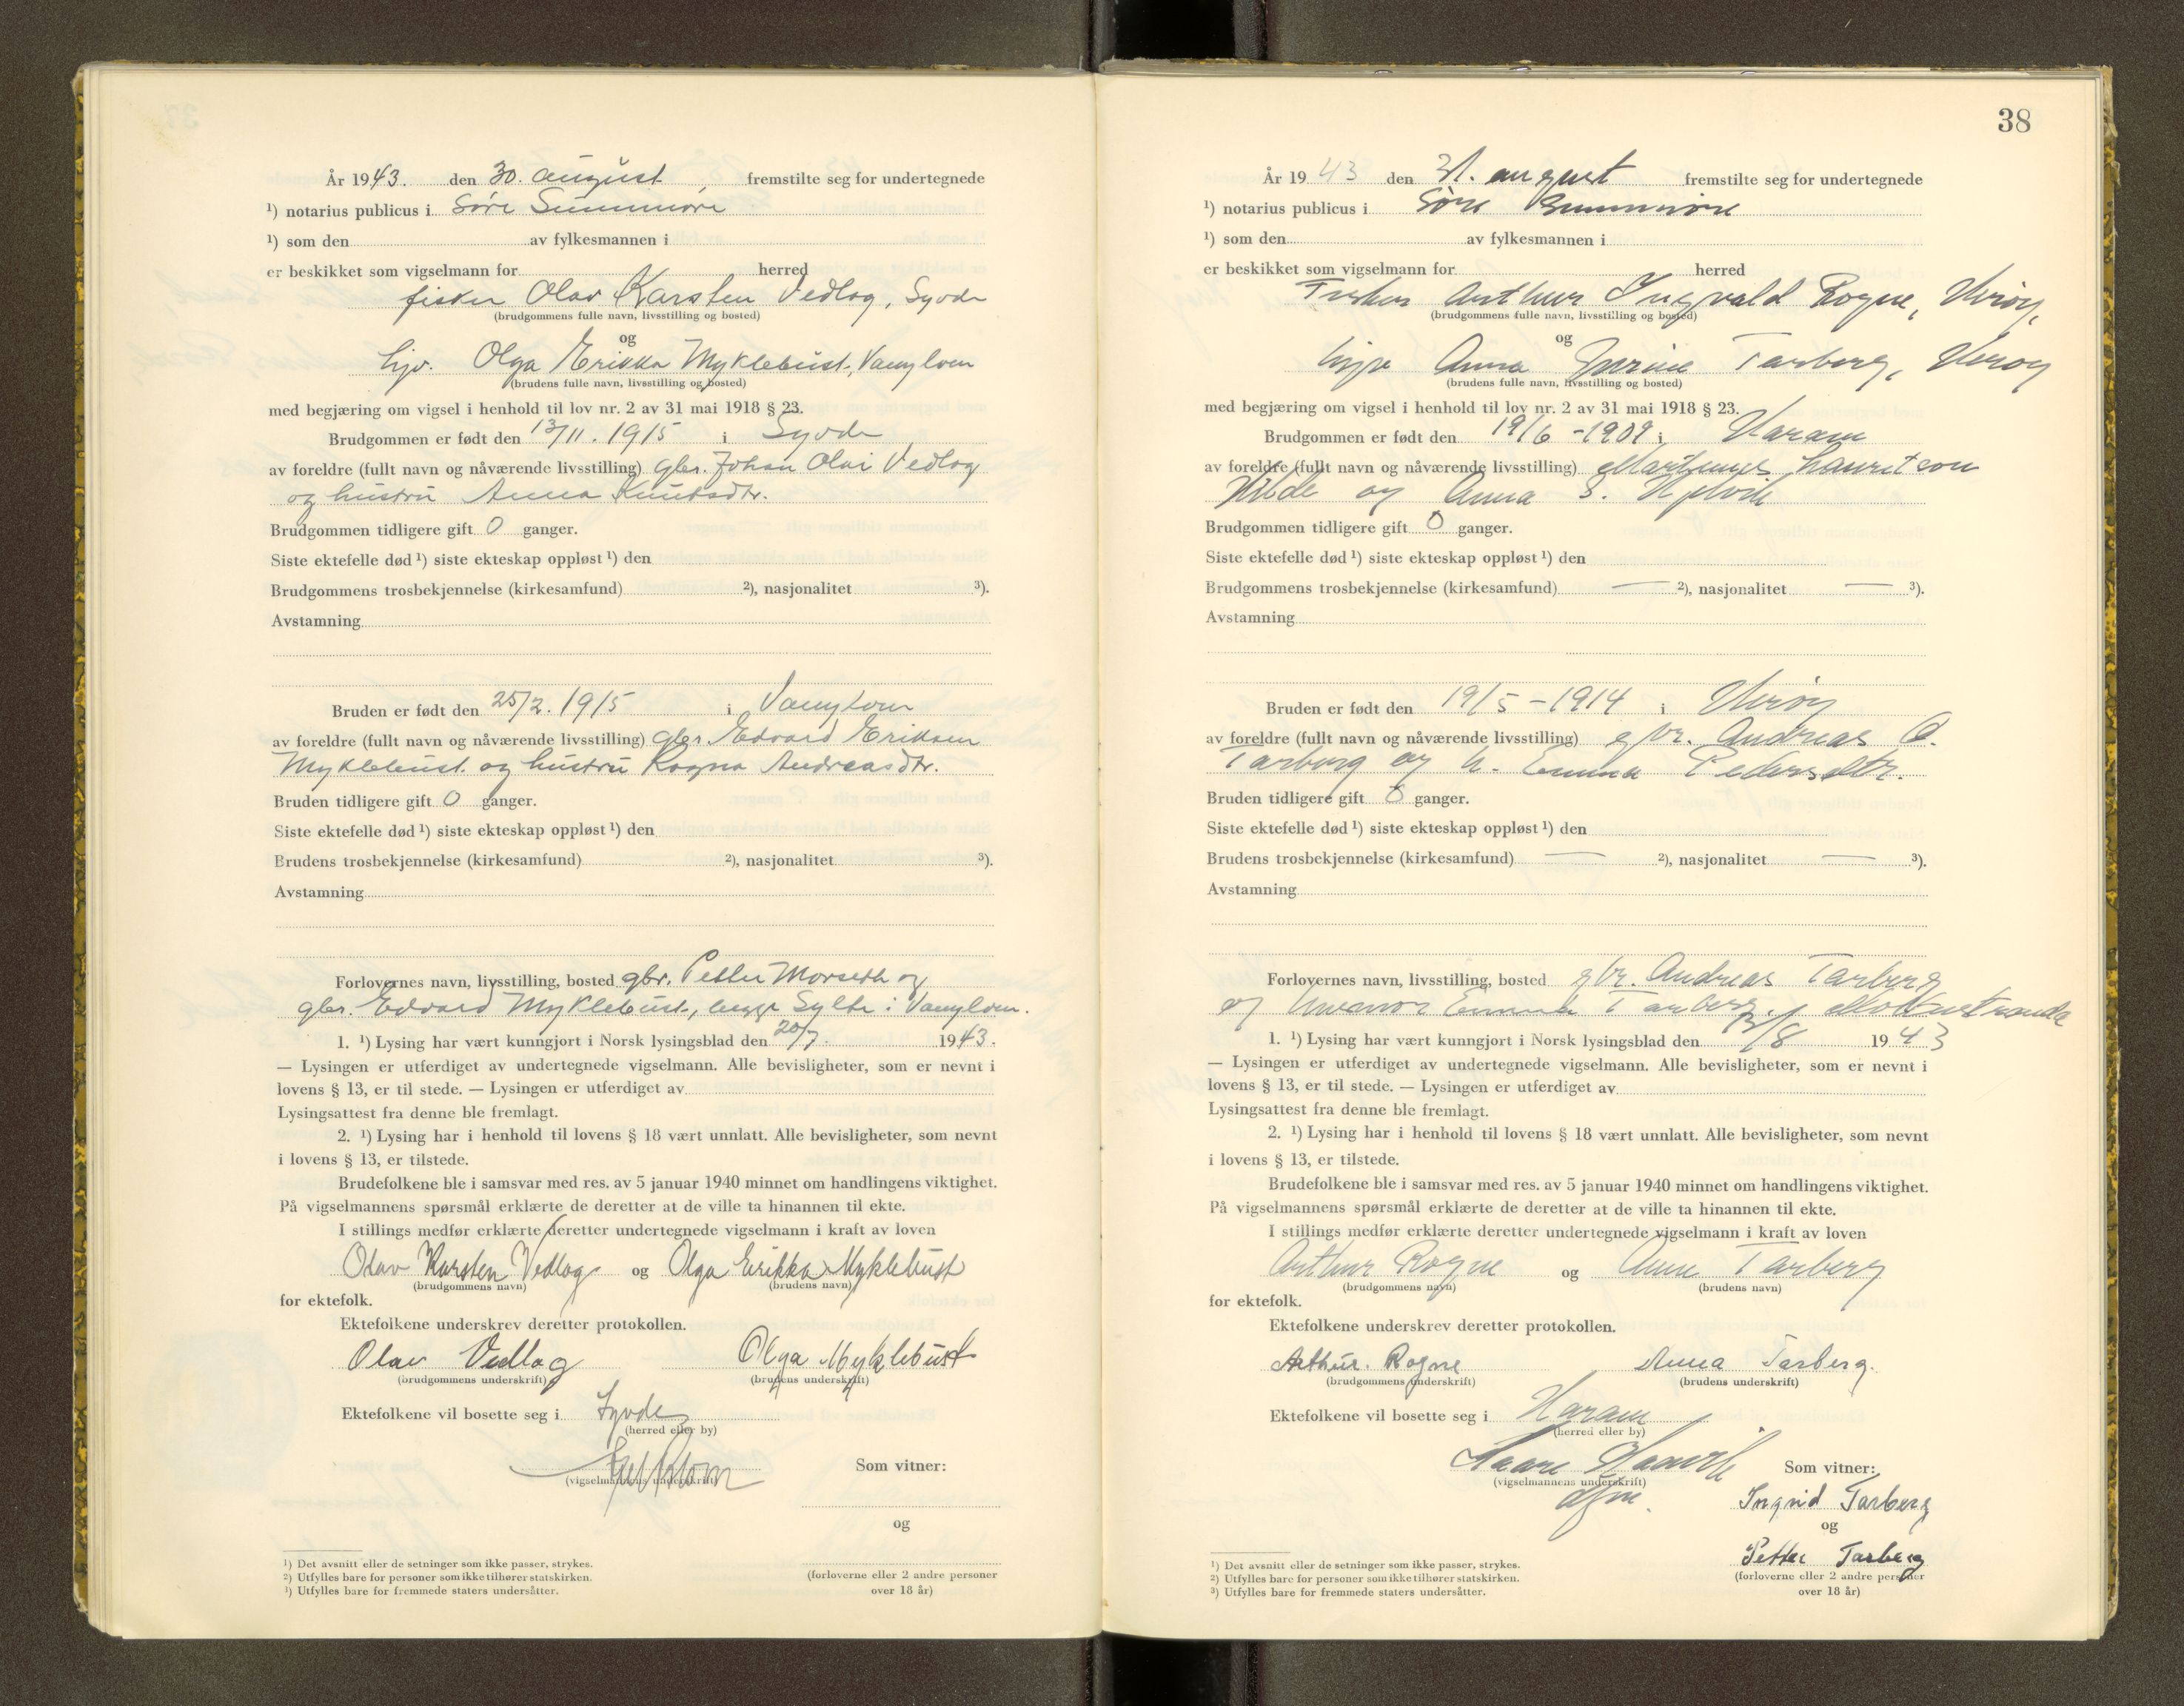 År 1943. den 30. august fremstilte seg for undertegnede
¹) notarius publicus i Søre Sunnmøre
¹) som den av fylkesmannen i
er beskikket som vigselmann for herred
fisker Olav Karsten Vedlog, Syvde
(brudgommens fulle navn, livsstilling og bosted)
og
hjv. Olga Erikka Myklebust, Vanylven
(brudens fulle navn, livsstilling og bosted)
med begjæring om vigsel i henhold til lov nr. 2 av 31 mai 1918 § 23.
Brudgommen er født den 13/11. 1915 i Syvde
av foreldre (fullt navn og nåværende livsstilling) gbr. Johan Olai Vedlog
og hustru Anna Knutsdtr.
Brudgommen tidligere gift 0 ganger.
Siste ektefelle død ¹) siste ekteskap oppløst ¹) den
Brudgommens trosbekjennelse (kirkesamfund) ²), nasjonalitet ³).
Avstamning
Bruden er født den 25/2. 1915 i Vanylven
av foreldre (fullt navn og nåværende livsstilling) gbr. Edvard Eriksen
Myklebust og hustru Ragna Andreasdtr.
Bruden tidligere gift 0 ganger.
Siste ektefelle død ¹) siste ekteskap oppløst ¹) den
Brudens trosbekjennelse (kirkesamfund) ²), nasjonalitet ³).
Avstamning
Forlovernes navn, livsstilling, bosted gbr. Petter Morseth og
gbr. Edvard Myklebust, begge Sylte i Vanylven.
1. ¹) Lysing har vært kunngjort i Norsk lysingsblad den 20/7. 1943.
— Lysingen er utferdiget av undertegnede vigselmann. Alle bevisligheter, som er nevnt i
lovens § 13, er til stede. — Lysingen er utferdiget av
Lysingsattest fra denne ble fremlagt.
2. ¹) Lysing har i henhold til lovens § 18 vært unnlatt. Alle bevisligheter, som nevnt
i lovens § 13, er tilstede.
Brudefolkene ble i samsvar med res. av 5 januar 1940 minnet om handlingens viktighet.
På vigselmannens spørsmål erklærte de deretter at de ville ta hinannen til ekte.
I stillings medfør erklærte deretter undertegnede vigselmann i kraft av loven
Olav Karsten Vedlog og Olga Erikka Myklebust
(brudgommens navn) (brudens navn)
for ektefolk.
Ektefolkene underskrev deretter protokollen.
Olav Vedlog Olga Myklebust
(brudgommens underskrift) (brudens underskrift)
Ektefolkene vil bosette seg i Syvde
(herred eller by)
Som vitner:
(vigselmannens underskrift)
og
¹) Det avsnitt eller de setninger som ikke passer, strykes.
²) Utfylles bare for personer som ikke tilhører statskirken.
³) Utfylles bare for fremmede staters undersåtter.
(forloverne eller 2 andre personer
over 18 år)
38
År 1943 den 31. august fremstilte seg for undertegnede
¹) notarius publicus i Søre Sunnmøre
¹) som den av fylkesmannen i
er beskikket som vigselmann for herred
Fisker Arthur Ingvald Rogne, Herøy,
(brudgommens fulle navn, livsstilling og bosted)
og
Anna Jurine Tarberg, Herøy
(brudens fulle navn, livsstilling og bosted)
med begjæring om vigsel i henhold til lov nr. 2 av 31 mai 1918 § 23.
Brudgommen er født den 19/6 - 1909 i Haram
av foreldre (fullt navn og nåværende livsstilling) Martinus Lauritson
og Anna S.
Brudgommen tidligere gift 0 ganger.
Siste ektefelle død ¹) siste ekteskap oppløst ¹) den
Brudgommens trosbekjennelse (kirkesamfund) — ²), nasjonalitet — ³).
Avstamning
Bruden er født den 19/5 - 1914 i Herøy
av foreldre (fullt navn og nåværende livsstilling) gbr. Andreas O.
Tarberg og h. Emma Pedersdtr.
Bruden tidligere gift 0 ganger.
Siste ektefelle død ¹) siste ekteskap oppløst ¹) den
Brudens trosbekjennelse (kirkesamfund) — ²), nasjonalitet — ³).
Avstamning
Forlovernes navn, livsstilling, bosted gbr. Andreas Tarberg
og Emma Tarberg, Moltustranda
1. ¹) Lysing har vært kunngjort i Norsk lysingsblad den 13/8 1943
— Lysingen er utferdiget av undertegnede vigselmann. Alle bevisligheter, som er nevnt i
lovens § 13, er til stede. — Lysingen er utferdiget av
Lysingsattest fra denne ble fremlagt.
2. ¹) Lysing har i henhold til lovens § 18 vært unnlatt. Alle bevisligheter, som nevnt
i lovens § 13, er tilstede.
Brudefolkene ble i samsvar med res. av 5 januar 1940 minnet om handlingens viktighet.
På vigselmannens spørsmål erklærte de deretter at de ville ta hinannen til ekte.
I stillings medfør erklærte deretter undertegnede vigselmann i kraft av loven
Arthur Rogne og Anna Tarberg
(brudgommens navn) (brudens navn)
for ektefolk.
Ektefolkene underskrev deretter protokollen.
Arthur. Rogne Anna Tarberg.
(brudgommens underskrift) (brudens underskrift)
Ektefolkene vil bosette seg i Haram
(herred eller by)
Som vitner:
(vigselmannens underskrift)
Ingrid Tarberg
og
Petter Tarberg
¹) Det avsnitt eller de setninger som ikke passer, strykes.
²) Utfylles bare for personer som ikke tilhører statskirken.
³) Utfylles bare for fremmede staters undersåtter.
(forloverne eller 2 andre personer
over 18 år)